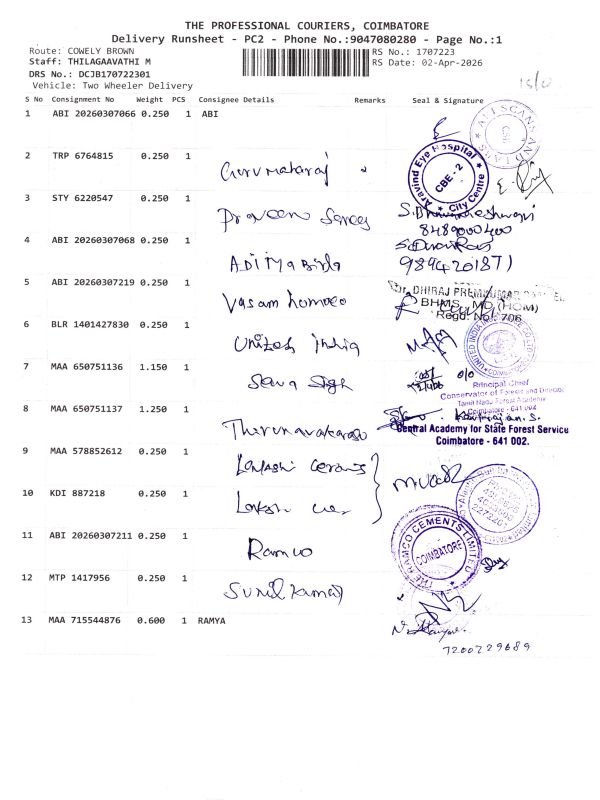 THE PROFESSIONAL COURIERS, COIMBATORE
Delivery Runsheet - PC2 - Phone No.:9047080280 - Page No.:1
Route: COWELY BROWN
RS No.: 1707223
Staff: THILAGAAVATHI M
RS Date: 02-Apr-2026
DRS No.: DCJB170722301
Vehicle: Two Wheeler Delivery
S No Consignment No Weight PCS Consignee Details Remarks Seal & Signature
1 ABI 20260307066 0.250 1 ABI
2 TRP 6764815 0.250 1
Gurumaharaj
Aravind Eye Hospital
CBE - 2
City Centre
3 STY 6220547 0.250 1
Praveen
8489000400
4 ABI 20260307068 0.250 1
Aditya Birla
9894201871
5 ABI 20260307219 0.250 1
Vasam homoeo
Dr. DHIRAJ PREMKUMAR
BHMS., MD (HOM)
Regd. No. 706
6 BLR 1401427830 0.250 1
United India
7 MAA 650751136 1.150 1
Principal Chief
Conservator of Forests and Director
Tamil Nadu Forest Academy
Coimbatore - 641 002
8 MAA 650751137 1.250 1
Thirunavakaraso
Central Academy for State Forest Service
Coimbatore - 641 002.
9 MAA 578852612 0.250 1
10 KDI 887218 0.250 1
11 ABI 20260307211 0.250 1
Ramco
THE RAMCO CEMENTS LIMITED
COIMBATORE
12 MTP 1417956 0.250 1
Sunil Kumar
13 MAA 715544876 0.600 1 RAMYA
7200729689